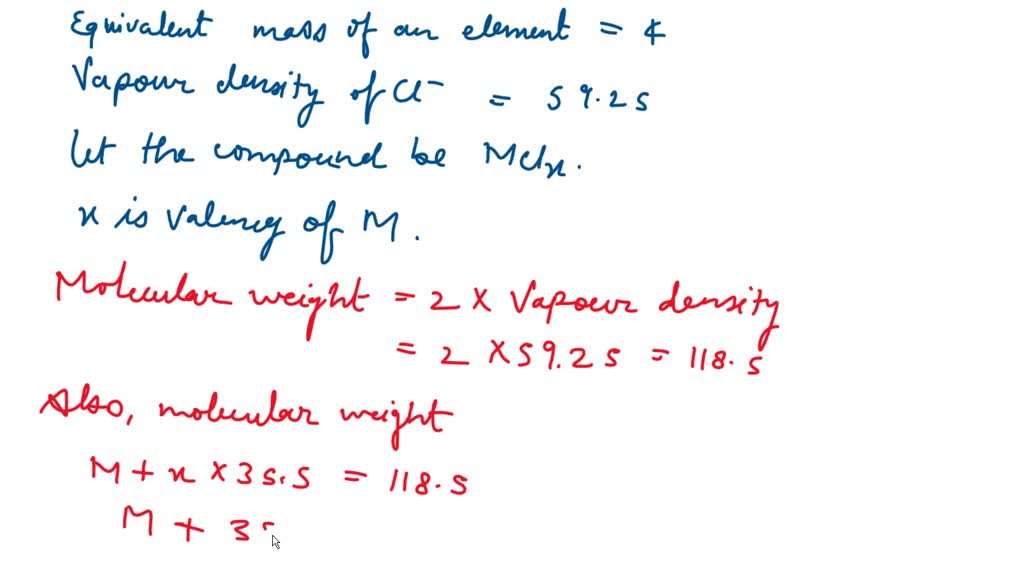 Equivalent mass of an element = 4
Vapour density of Cl⁻ = 59.25
Let the compound be MClx.
x is valency of M.
Molecular weight = 2 × Vapour density
= 2 × 59.25 = 118.5
Also, molecular weight
M + x × 35.5 = 118.5
M + 3